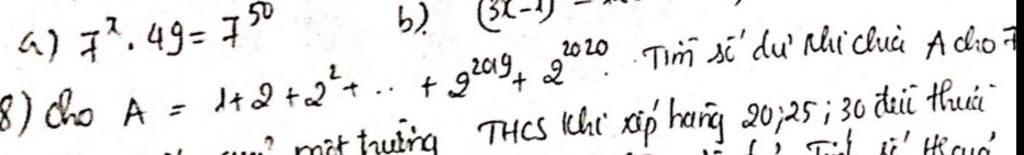 a) 7^x . 49 = 7^50 b) (3x-1)
8) Cho A = 1+2+2^2+ .. + 2^2019 + 2^2020. Tìm số dư khi chia A cho 7
một trường THCS khi xếp hàng 20; 25; 30 đều thừa